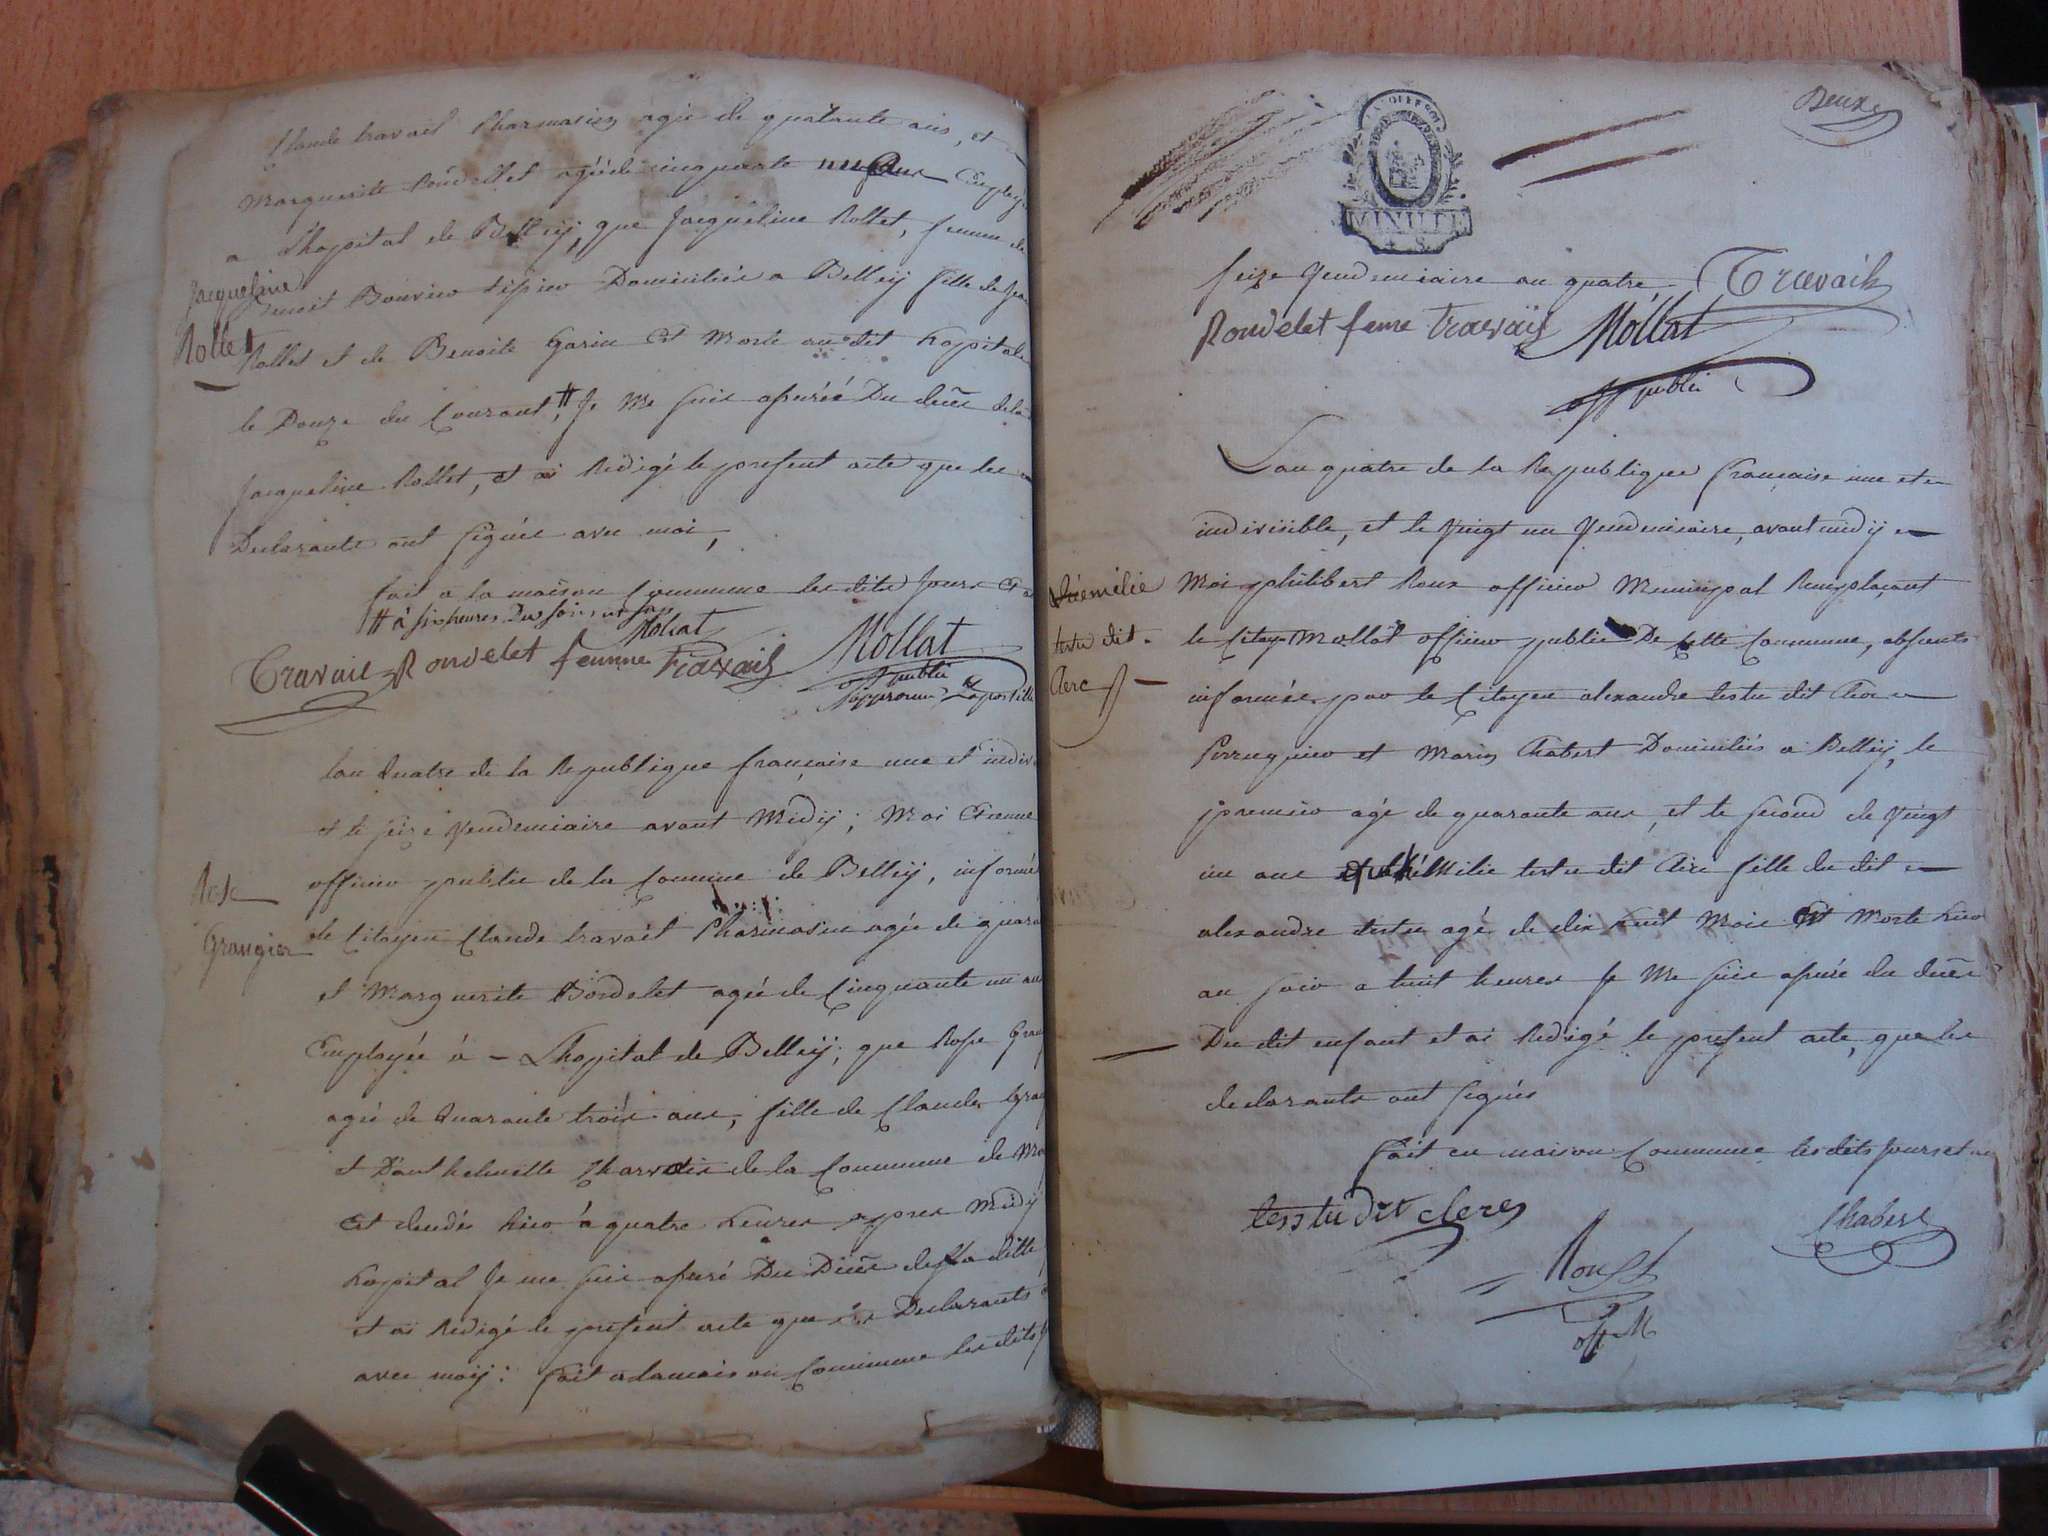 Claude travail Pharmacien agée de quarante ans, et
Marguerite Rondellet agéé de cinquante neuf ans Employé
a Lhopital de Belleÿ, que Jacqueline Rollet, femme de
Jacqueline
Rollet
Benoit Bouvier Domiciliée a Belleÿ fille de Jean
Rollet et de Benoite Garin Est Morte au dit hopital
le Douze du Courant, # Je Me suis assurée Du décès de la
Jacqueline Rollet, et ai Redigé le present acte que les
Declarants ont signés avec moi,
fait a la maison Commune les dits Jours Et an
# à six heures Du soir
Mollat
Travail Rondelet femme travail Mollat
off publi
Approuvé Lapostille
lan quatre de la Republique française une et indivi
et le seize Vendemiaire avant Midÿ; Moi Etienne
Rose
Grangier
officier public de la Commune de Belleÿ, informé
le Citoyen Claude travail Pharmacien agée de quara
et Marguerite Rondelet agée de Cinquante un ans
Employée à Lhopital de Belleÿ; que Rose Gran
agée de quarante trois ans, fille de Claude Gran
et Danthelmette Charvetin de la Commune de Ma
Est decedée hier à quatre heures apres Midÿ
hopital Je me suis assuré Du Décès de la ditte
et ai Redigé le present acte que les Declarants
avec moÿ: fait a la maison Commune les dits J
Deux
MINUTE
seize Vendemiaire an quatre, Travail
Rondelet feme travail Mollat
off publi
Lan quatre de la Republique francaise une et
indivisible, et le Vingt un Vendemiaire, avant midÿ
émélie
testu dit
Clerc
Moi philibert Roux officier Municipal Remplacant
le Citoyen Mollat officier public De Cette Commune, absent
informée par le Citoyen alexandre testu dit Clerc
Perruquier et Marin Chabert Domiciliés a Belleÿ, le
premier agé de quarante ans, et le second de Vingt
un ans que émilie testu dit Clerc fille du dit
alexandre testu agé de dix huit Mois Est Morte hier
au soir a huit heures Je Me suis assuré du décès
Du dit enfant et ai Redigé le present acte, que les
declarants ont signés
Fait en maison Commune les dits Jours et an
testu dit clerc
Chabert
Roux
off M